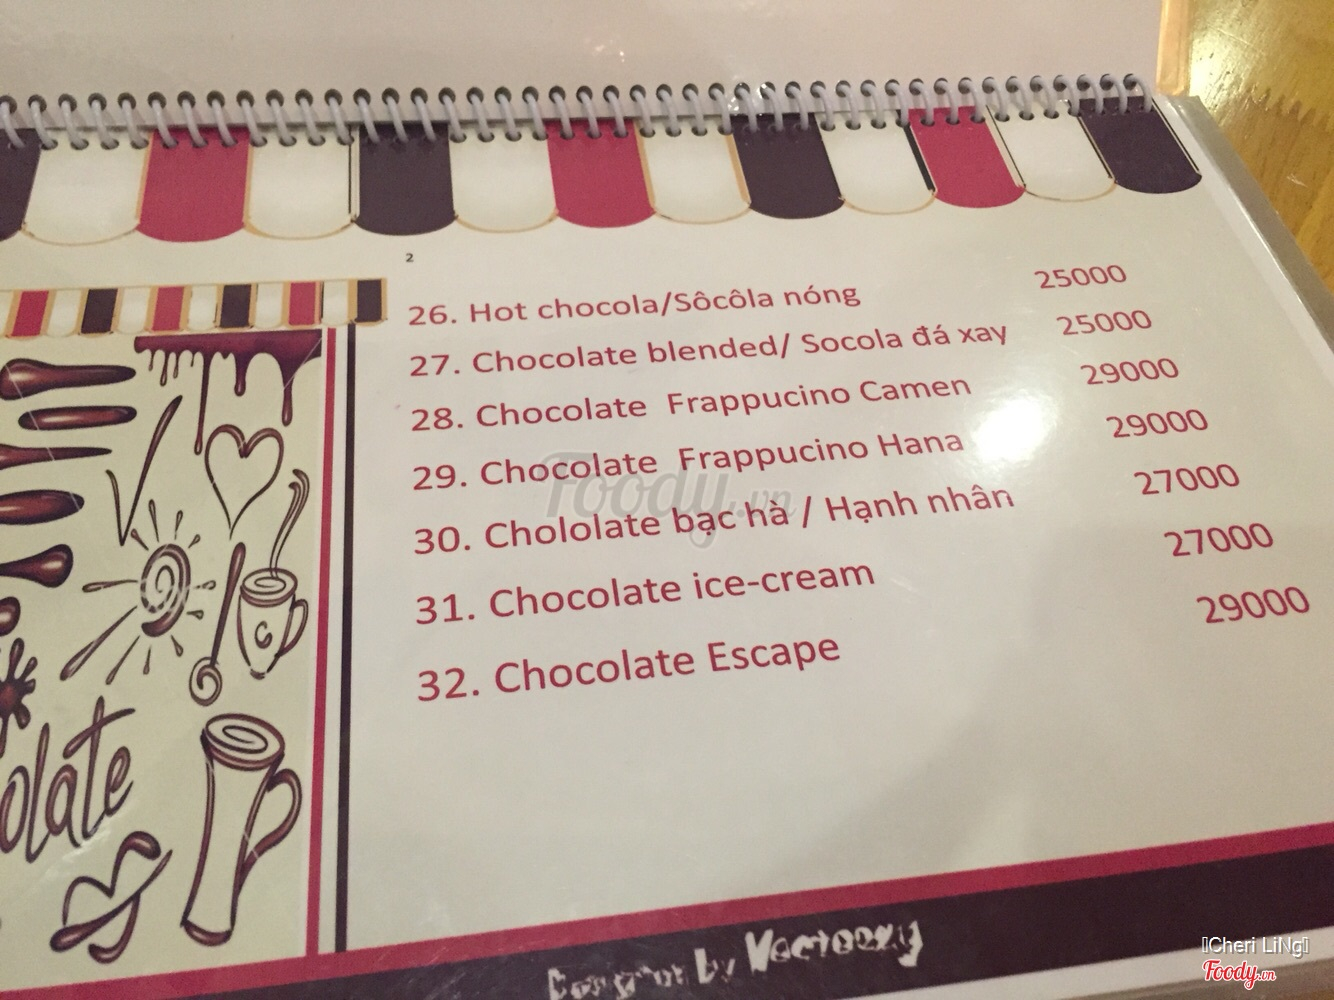 2
26. Hot chocola/Sôcôla nóng 25000
27. Chocolate blended/ Socola đá xay 25000
28. Chocolate Frappucino Camen 29000
29. Chocolate Frappucino Hana 29000
30. Chololate bạc hà / Hạnh nhân 27000
31. Chocolate ice-cream 27000
32. Chocolate Escape 29000
Foody.vn
olate
by Vecteezy
Cheri LiNg
Foody.vn